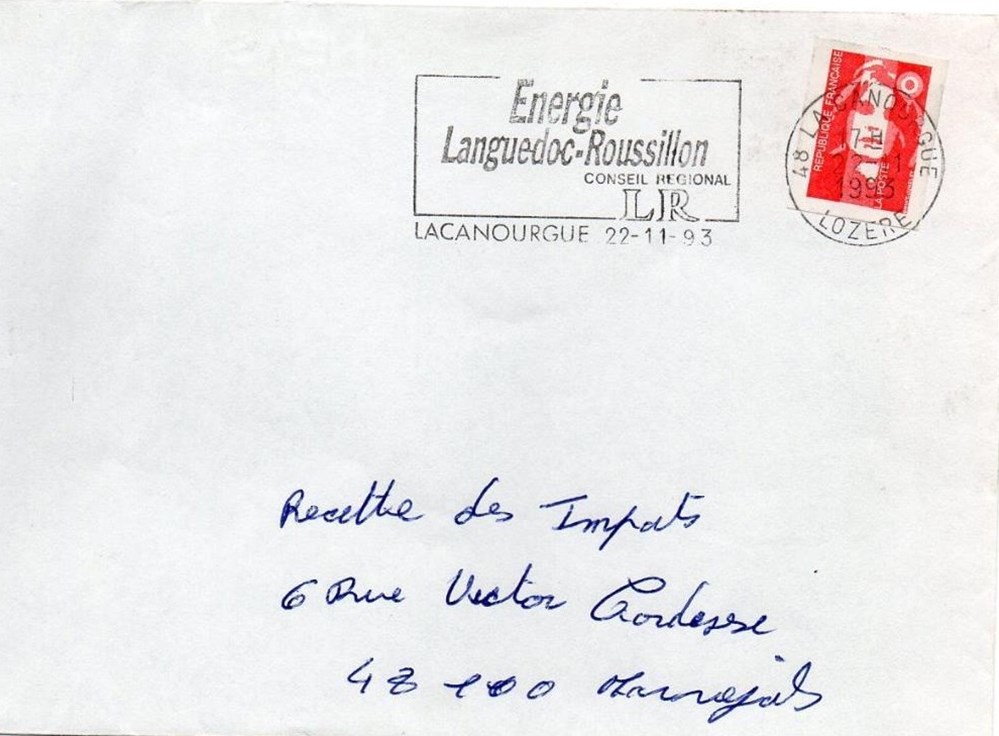 Energie
Languedoc-Roussillon
CONSEIL REGIONAL
LR
LACANOURGUE 22-11-93
REPUBLIQUE FRANÇAISE
LA POSTE
48 LA CANOURGUE
1993
LOZERE
Recette des Impots
6 Rue Victor Cordesse
48 100 Marvejols